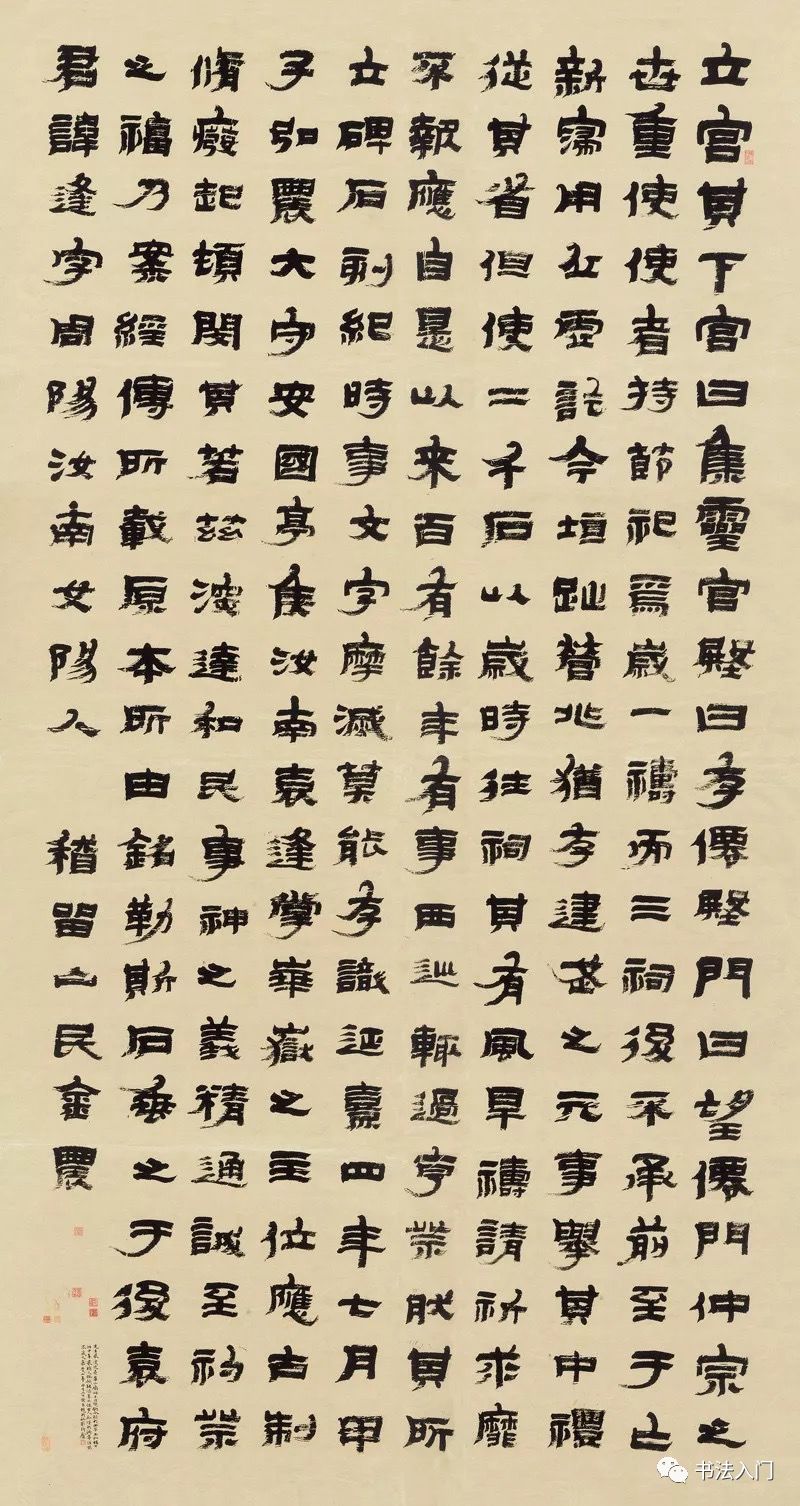 立宮其下宮曰集靈宮壂曰存僊壂門曰望僊門仲宗之
世重使使者持節祀焉歲一禱而三祠後不承前至于亡
新寖用丘虛訖今垣趾營兆猶存建武之元事舉其中禮
從其省但使二千石以歲時往祠其有風旱禱請祈求靡
不報應自是以來百有餘年有事西巡輒過亨祭然其所
立碑石刻紀時事文字摩滅莫能存識延熹四年七月甲
子弘農大守安國亭侯汝南袁逢掌華嶽之主位應古制
脩廢起頓閔其若茲深達和民事神之義精通誠至礿祭
之福乃案經傳所載原本所由銘勒斯石垂之于後袁府
君諱逢字周陽汝南女陽人 稽留山民金農
书法入门